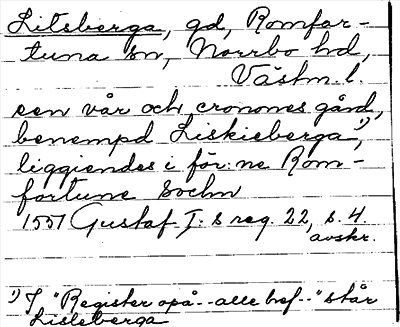 Litsberga, gd, Romfar-
tuna sn, Norrbo hd,
Västm. l.
een vår och cronones gård,
benempd Liskieberga¹⁾,
liggiendes i för:ne Rom-
fortune sochn
1551 Gustaf I:s reg. 22, s. 4.
avskr.
¹⁾ I "Register opå--alle bref--" står
Lisleberga